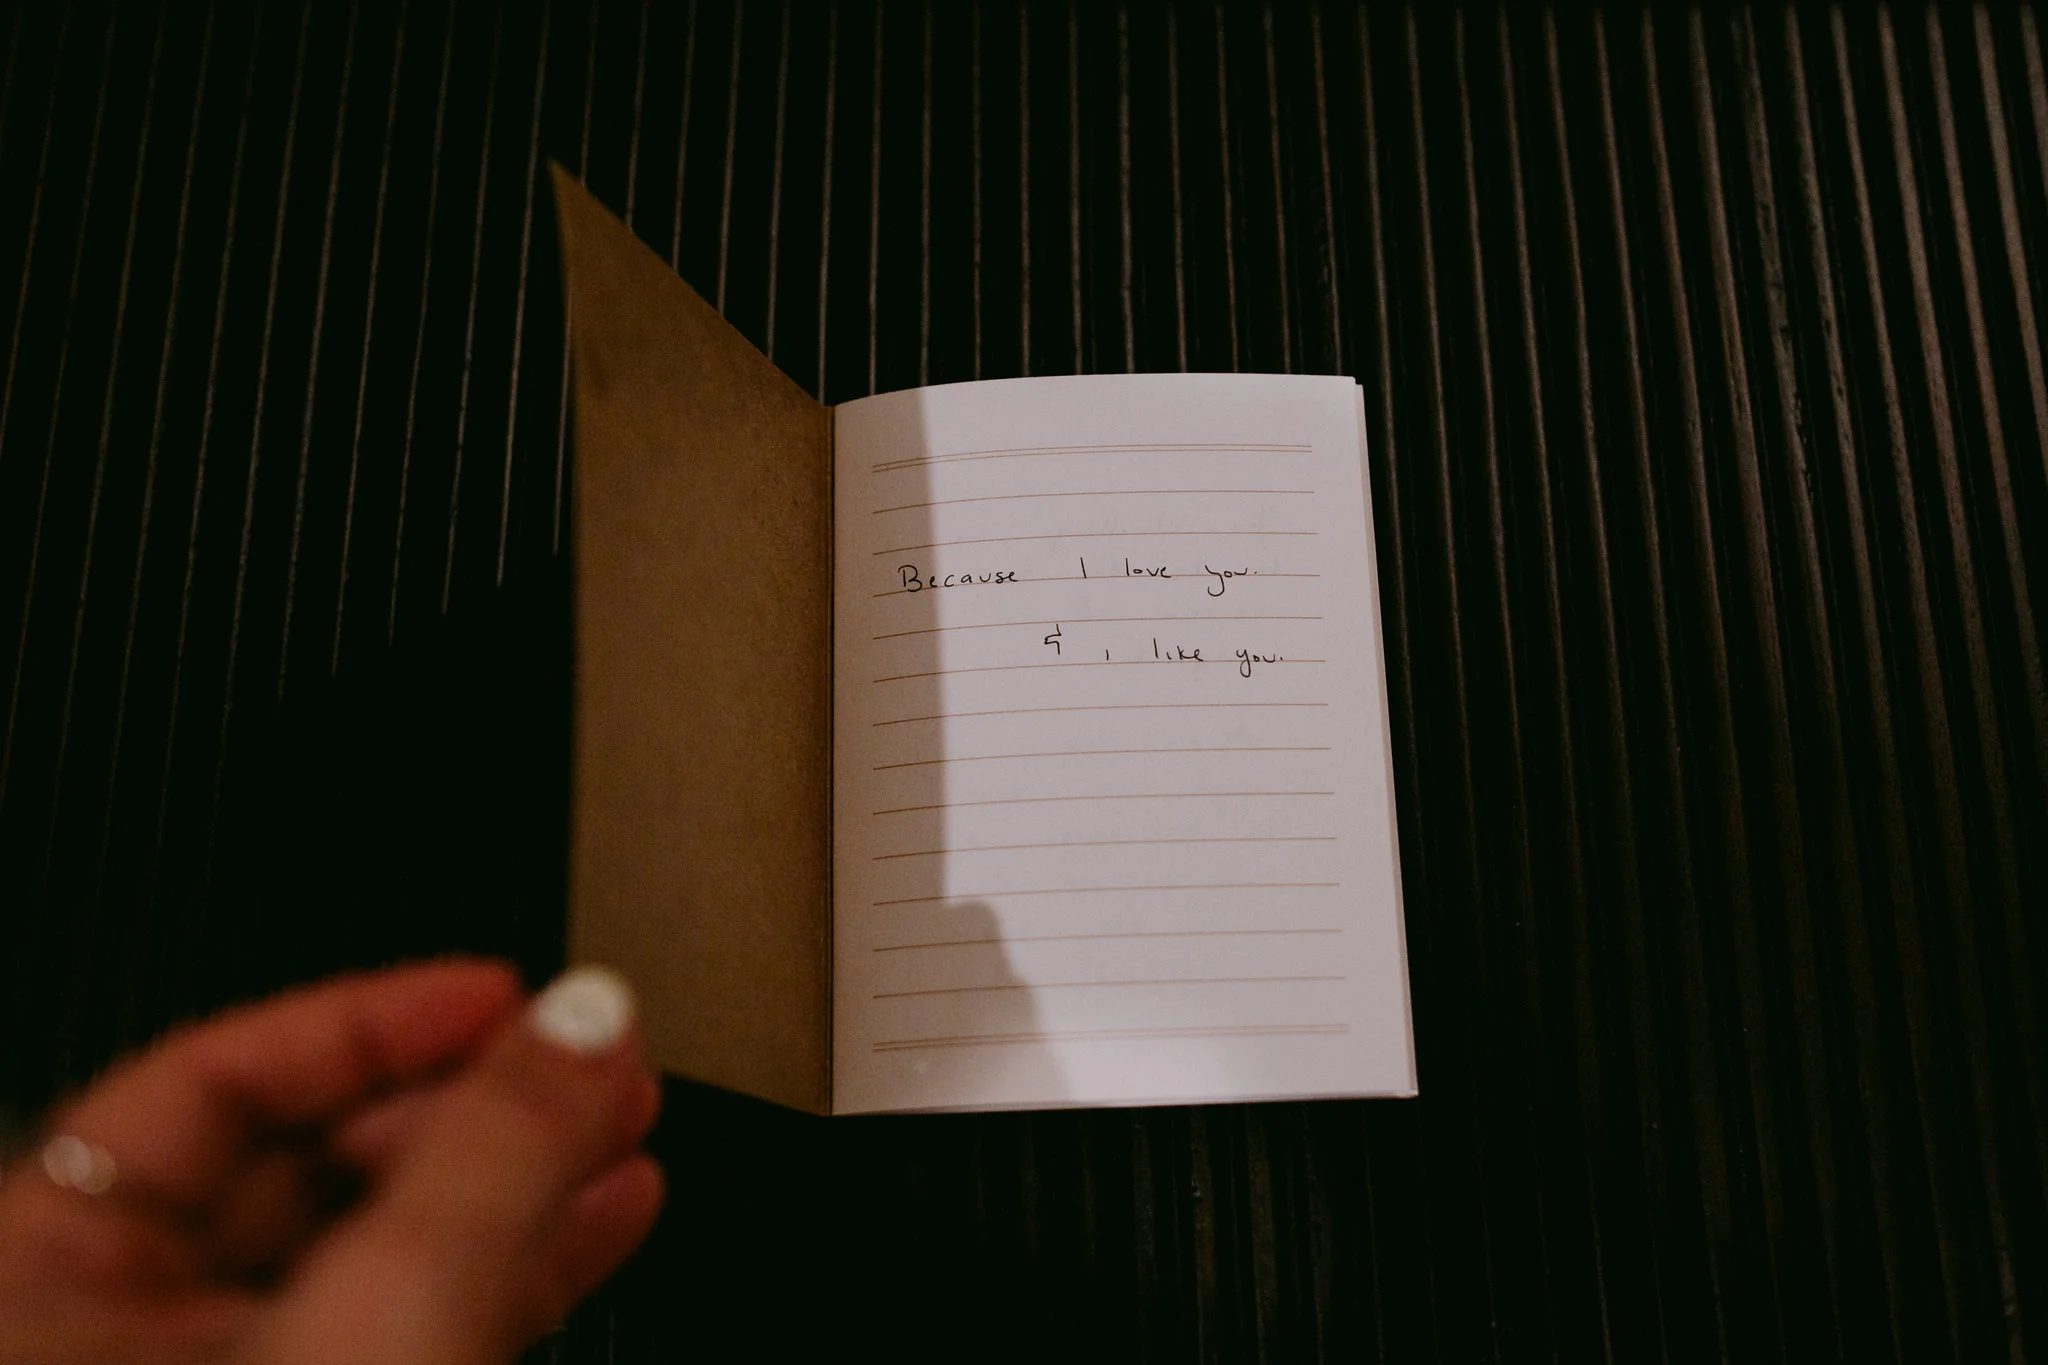 Because I love you.
& i like you.